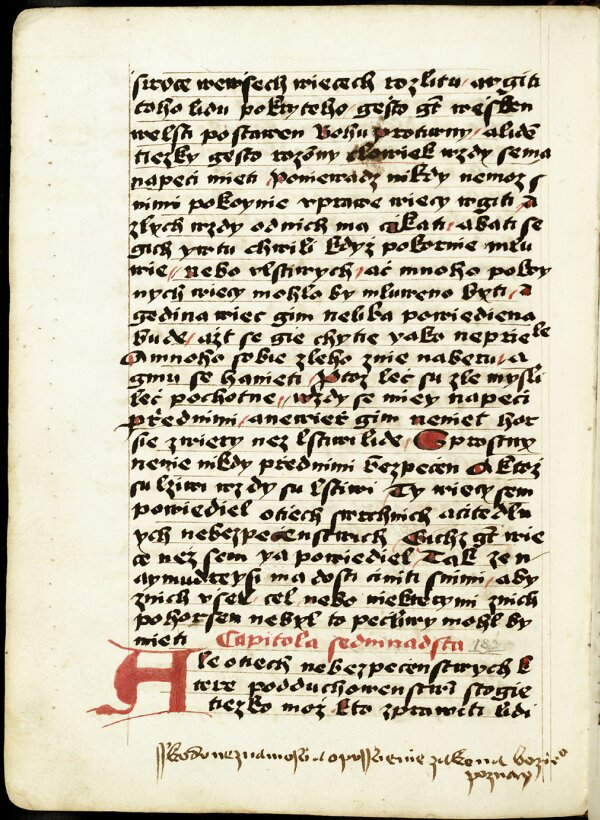 srdce wewsech wiecech rozlitu argiti
toho lidu pokryteho gesto gt wessken
welsti postawen Bohu protiwny alide
tiezky gesto rozony clowiek wzdy sema
napeci mieti Poniewadz nikdy nemoz s
nimi pokoynie vprawe wiecy wgiti A
zlych wzdy odnich ma cikati abati se
gich ywtu chwili kdyz pokornie mlu
wie nebo vlstiwych ac mnoho pokoy
nych wiecy mohlo by mluweno byti A
gedina wiec gim neliba powiediena
bude azt se gie chytie yako nepriele
A mnoho sobie zleho znie naberu A
gmu se hanieti Protoz lec su zle mysli
lec pochotne wzdy se miey napeci
prednimi anewier gim nemiet hor
sie zwiery nez lstiwi lide Sprostny
nenie nikdy prednimi bezpecen A ktoz
su lziwi wzdy su lstiwi Ty wiecy sem
powiediel otiech swrchnich acitedln
ych nebezpecenstwich Gichz gt wie
ce nez sem ya powiediel Tak ze n
aymudreysi ma dosti ciniti snimi aby
znich vsel cel nebo niekterymi znich
pohorsen nebyl to pecliwy mohl by
mieti Capitola sedmnadsta 183
Ale otiech nebezpecenstwych k
tere podduchowenstwi stogie
tiezko moz kto zprawiti lidi
sskodu neznamosti a opusstienie zakona bozieo
poznay